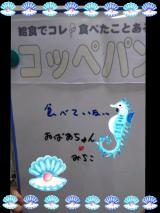 給食でコレ食べたことある
コッペパン
食べていない
おばあちゃん
みちこ